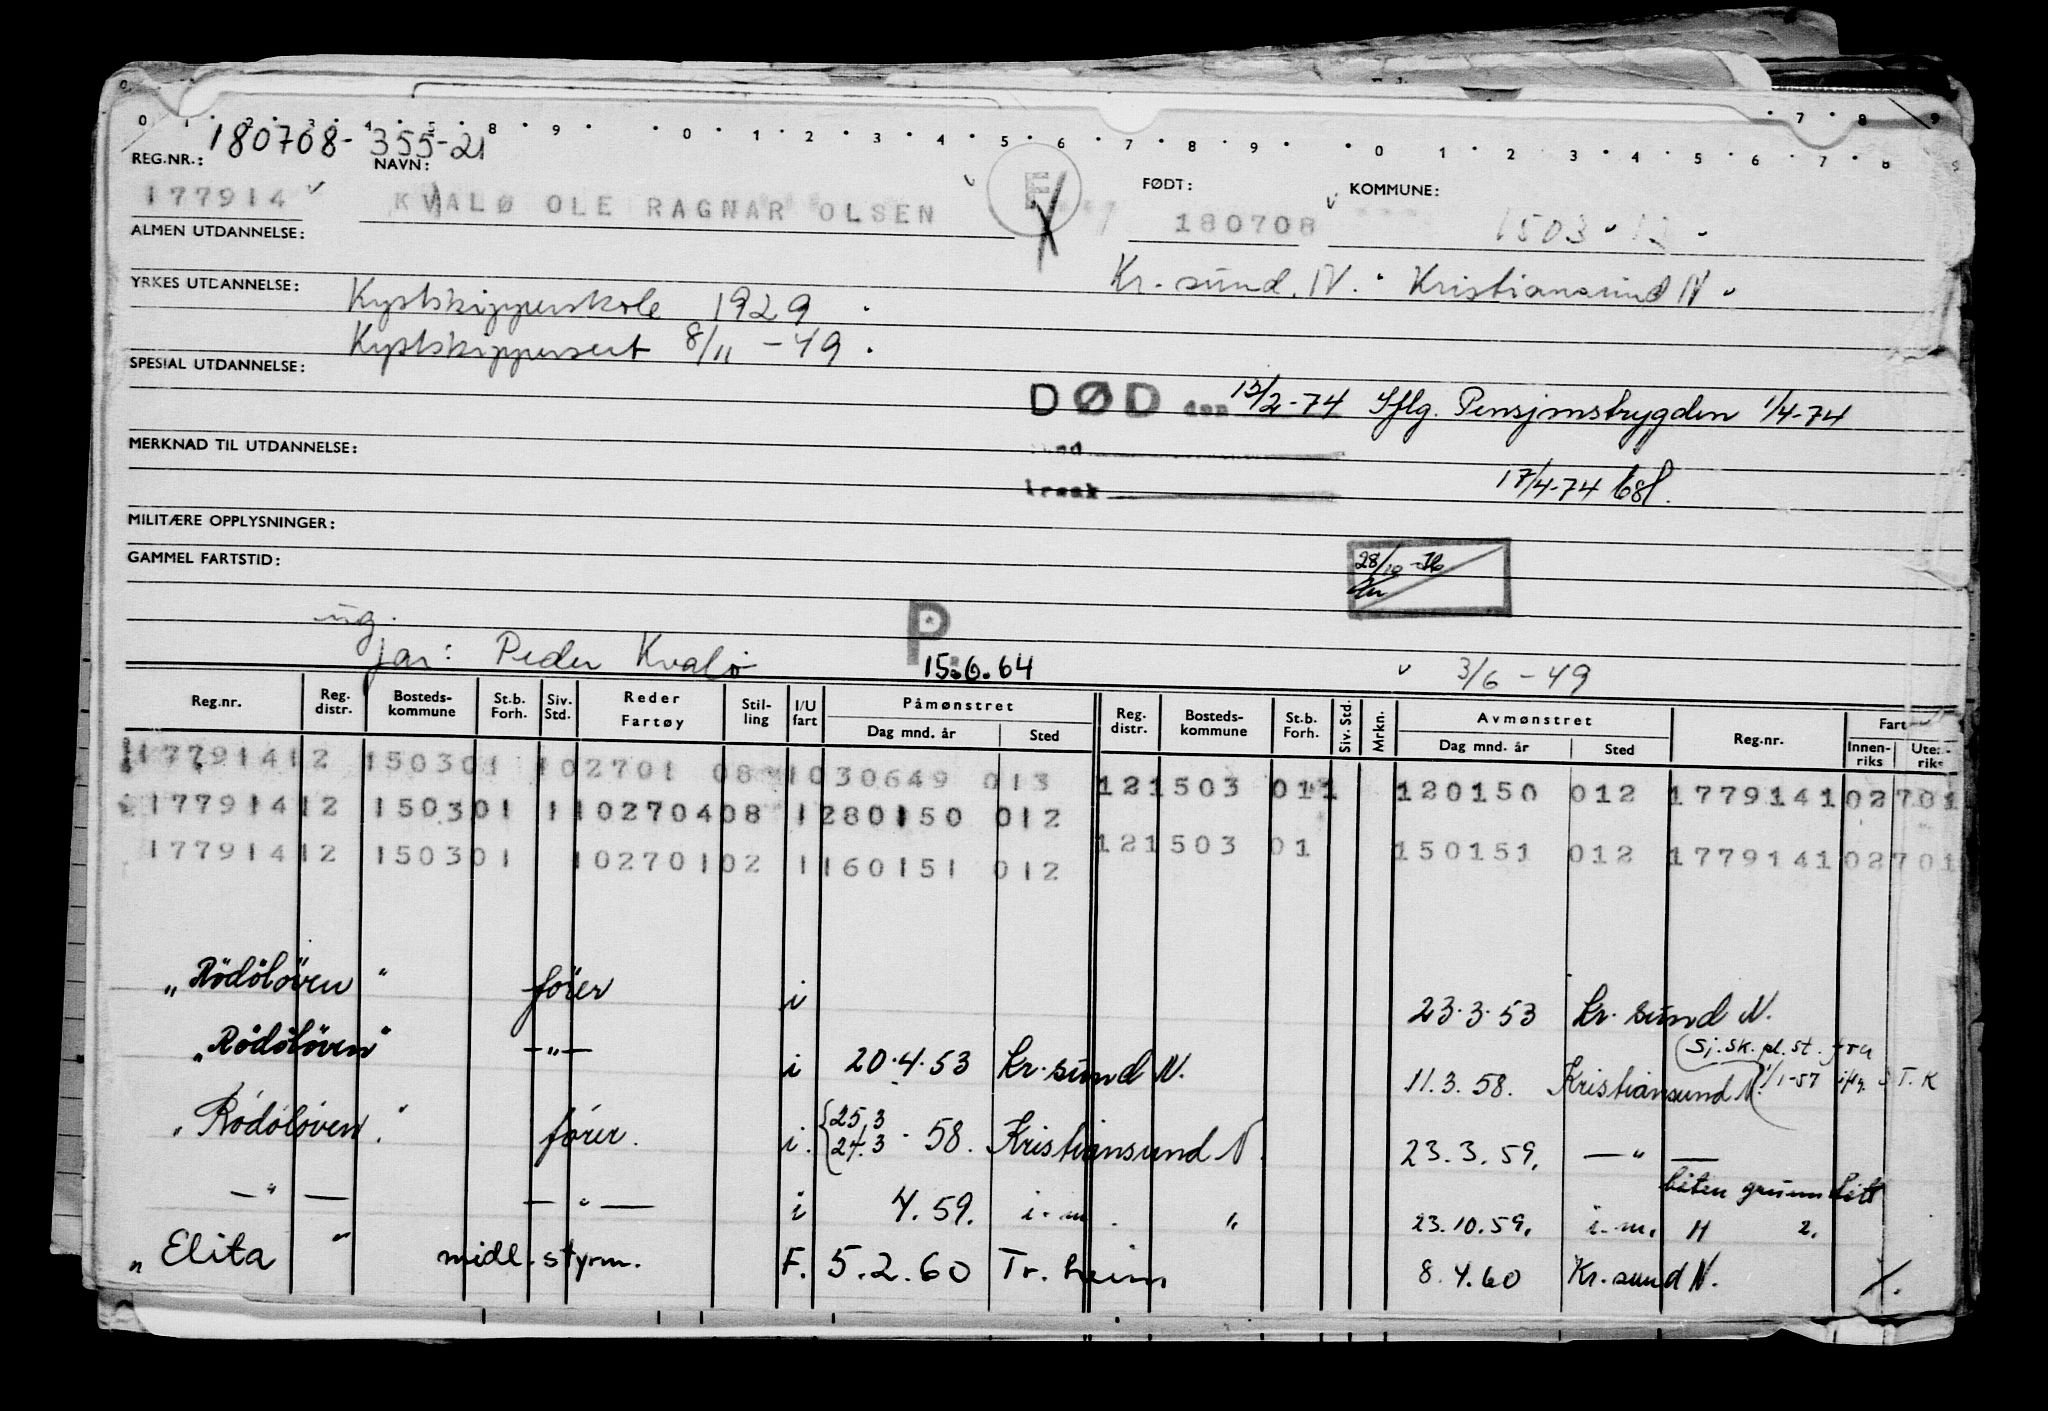 0 1 2 3 4 5 8 9 0 1 2 3 4 5 6 7 8 9 0 1 2 3 4 5 6 7 8 9
7 8 9
180708-35521
REG.NR.: NAVN: FØDT: KOMMUNE:
177914 KVALØ OLE RAGNAR OLSEN E 180708 1503
ALMEN UTDANNELSE:
Kr. sund. N. Kristiansund N
YRKES UTDANNELSE: Kystskipperskole 1929
Kystskippersert 8/11 - 49
SPESIAL UTDANNELSE:
DØD den 13/2-74 Iflg. Pensjonstrygden 1/4-74
MERKNAD TIL UTDANNELSE:
17/4-74
MILITÆRE OPPLYSNINGER:
GAMMEL FARTSTID:
28/10
ug.
far: Peder Kvalø P 15.6.64 3/6 - 49
Reg.nr. Reg. distr. Bosteds- kommune St.b. Forh. Siv. Std. Reder Fartøy Stil- ling I/U fart Påmønstret Dag mnd. år Sted Reg. distr. Bosteds- kommune St.b. Forh. Siv. Std. Mrkn. Avmønstret Dag mnd. år Sted Reg.nr. Fart Innen- riks Uten- riks
17791412 150301 102701 08 1030649 013 121503 011 120150 012 1779141 02701
17791412 150301 110270408 1280150 012
121503 01 150151 012 1779141 02701
17791412 150301 10270102 1160151 012
"Rödölöven" fører i 23.3.53 Kr. sund N.
"Rödölöven" -"- i 20.4.53 Kr. sund N. 11.3.58. Kristiansund N. (Sj. sk. pl. st. fra 1/1-57 iflg. S.T.K
"Rödölöven" fører. i. {25.3 24.3 58. Kristiansund N. 23.3.59. -"-
-"- -"- i 4.59. i.m. " 23.10.59. i.m. H 2.
"Elita" midl. styrm. F. 5.2.60 Tr. heim 8.4.60 Kr. sund N.